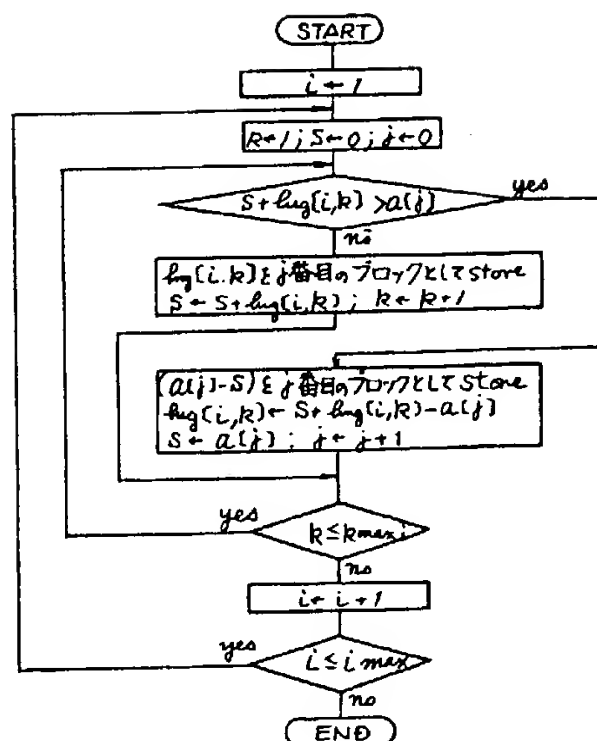 START
i ← 1
k←1; S←0; j←0
S + lng[i,k] > a[j]
yes
no
lng[i.k]をj番目のブロックとしてstore
S ← S + lng[i,k]; k ← k+1
(a[j]-S)をj番目のブロックとしてstore
lng[i,k] ← S + lng[i,k] - a[j]
S ← a[j]; j ← j+1
yes
k ≤ k max i
no
i ← i + 1
yes
i ≤ i max
no
END